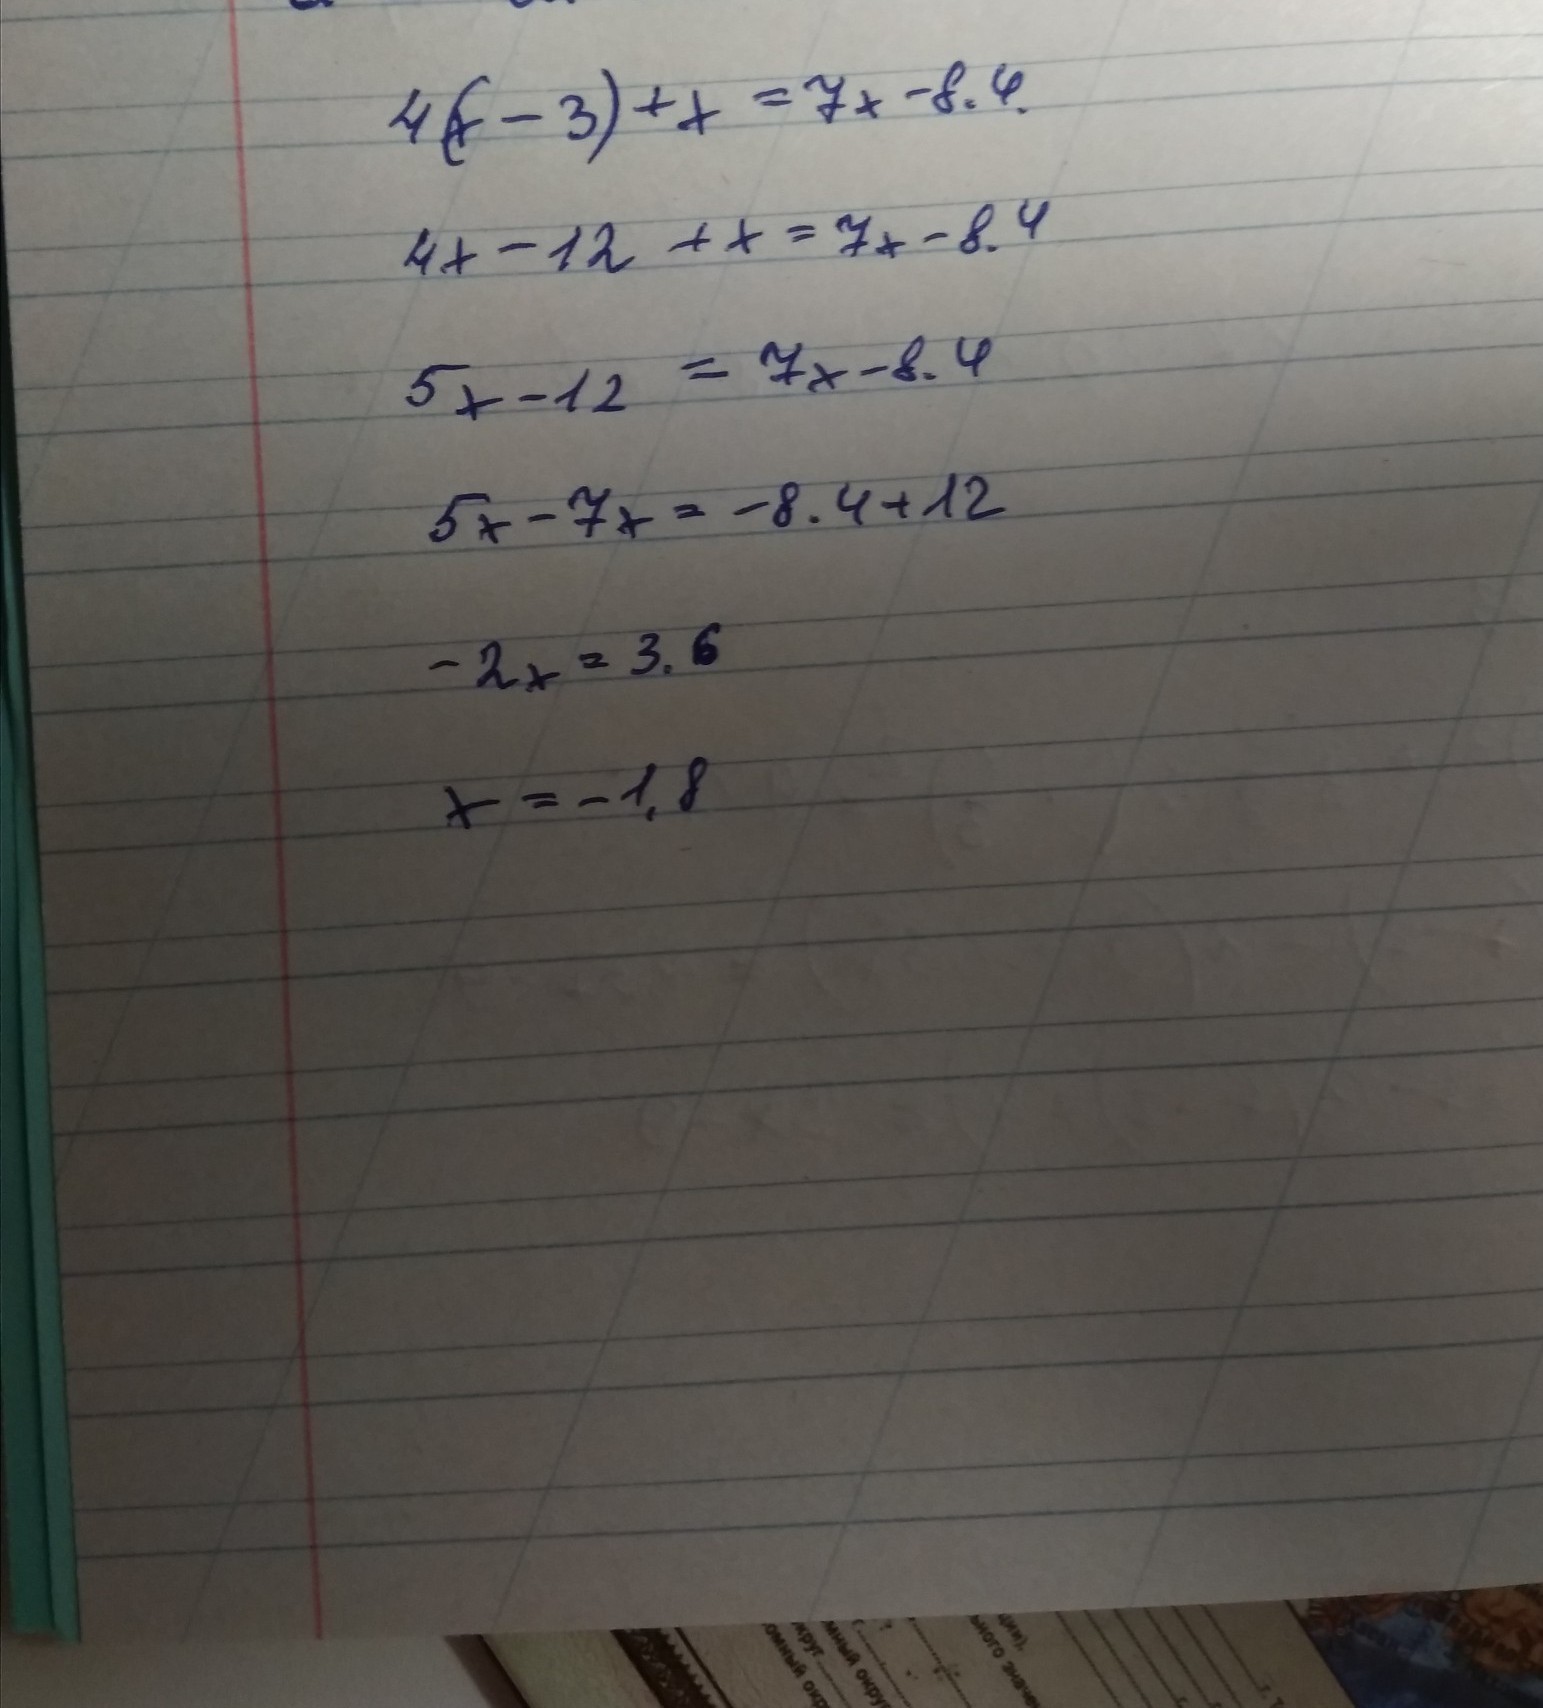 4(x-3)+x=7x-8.4.
4x-12+x=7x-8.4
5x-12=7x-8.4
5x-7x=-8.4+12
-2x=3.6
x=-1,8